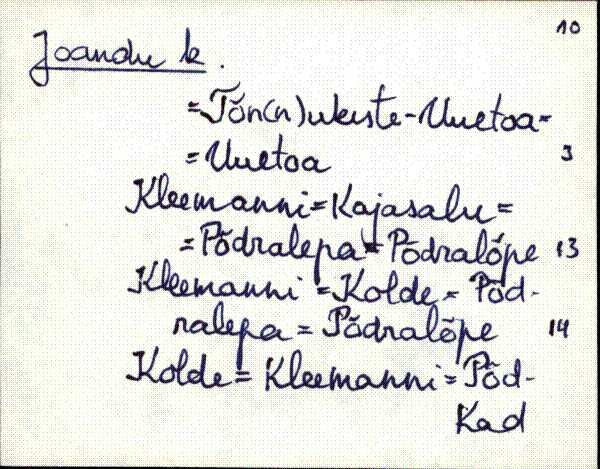 10
Joandu k.
=Tõn(n)ukeste-Uuetoa=
=Uuetoa 3
Kleemanni=Kajasalu=
=Põdralepa=Põdralõpe 13
Kleemanni=Kolde=Põd-
ralepa=Põdralõpe 14
Kolde=Kleemanni=Põd-
Kad